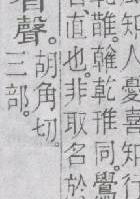 知人憂喜知行
乾䧿。雗乾䧿同。鷽
直也。非取名於
聲。胡角切。
三部。